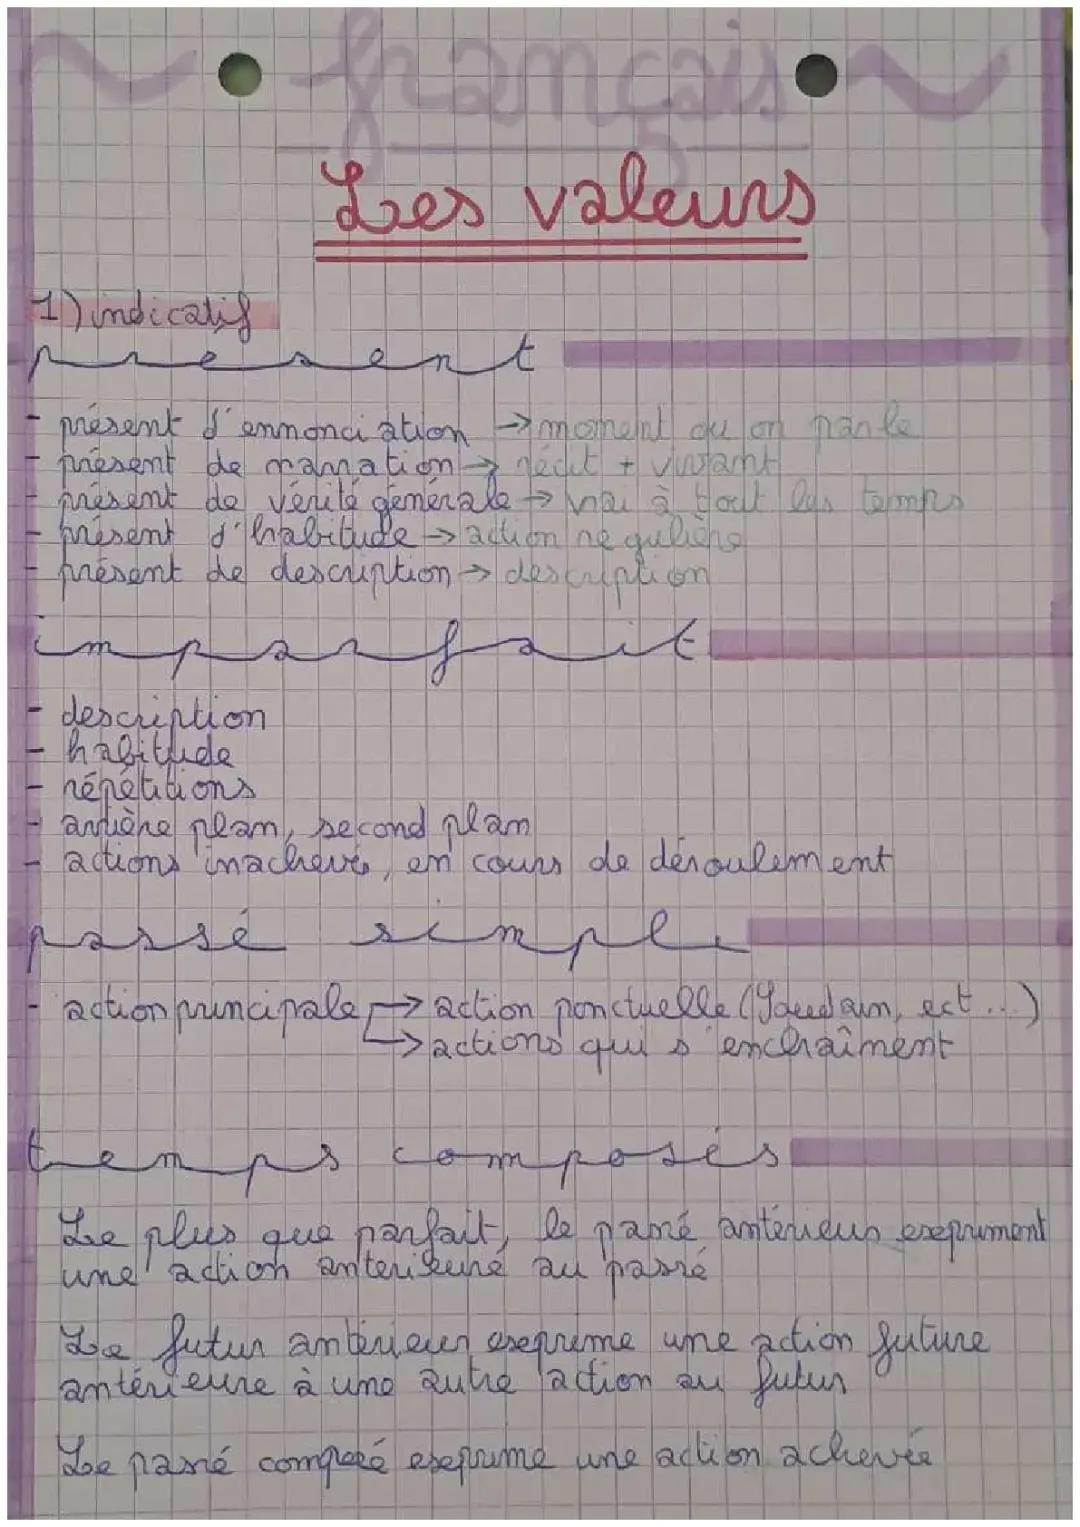 français
Les valeurs
1) indicatif
présent
- présent d'ennonciation → moment ou on parle
- présent de narration → récit + vivant
- présent de vérité générale → vrai à tout les temps
- présent d'habitude → action régulière
- présent de description → description
imparfait
- description
- habitude
- répétitions
- arrière plan, second plan
- actions inachevés, en cours de déroulement
passé simple
- action principale → action ponctuelle (Soudain, ect...)
→ actions qui s'enchaînent
temps composés
Le plus que parfait, le passé antérieur exepriment
une action anterieure au passé
Le futur antérieur exeprime une action future
antérieure à une autre action au futur
Le passé composé exeprime une action achevée